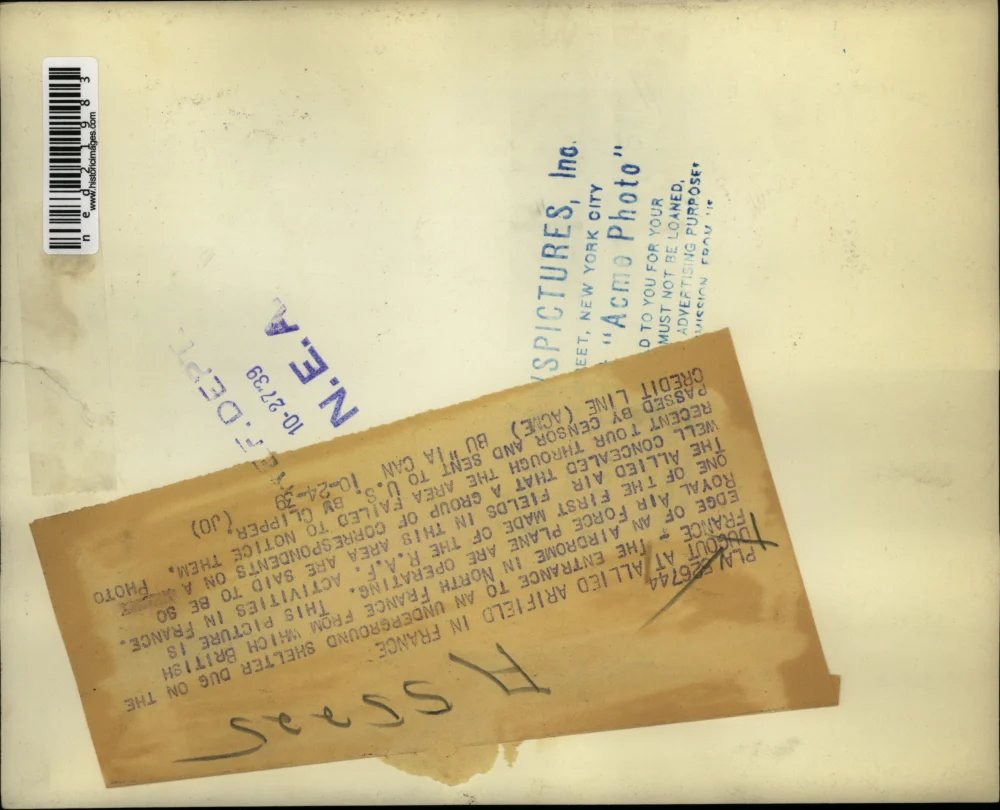 ned21983
www.historicimages.com
SPICTURES, Inc.
EET, NEW YORK CITY
"Acme Photo"
D TO YOU FOR YOUR
MUST NOT BE LOANED,
ADVERTISING PURPOSES
MISSION FROM US
F. DEPT.
10-27-39
N.E.A.
DUGOUT AT ALLIED ARIFIELD IN FRANCE
FRANCE THE ENTRANCE TO AN UNDERGROUND SHELTER DUG ON THE
EDGE OF AN AIRDROME IN NORTH FRANCE FROM WHICH BRITISH
ROYAL AIR FORCE PLANE ARE OPERATING. THIS PICTURE IS
ONE OF THE FIRST MADE OF THE R.A.F. ACTIVITIES IN FRANCE.
THE ALLIED AIR FIELDS IN THIS AREA ARE SAID TO BE SO
WELL CONCEALED THAT A GROUP OF CORRESPONDENTS ON A
RECENT TOUR THROUGH THE AREA FAILED TO NOTICE THEM. PHOTO
PASSED BY CENSOR AND SENT TO U.S. BY CLIPPER.
CREDIT LINE (ACME) 10-24-39 (JO)